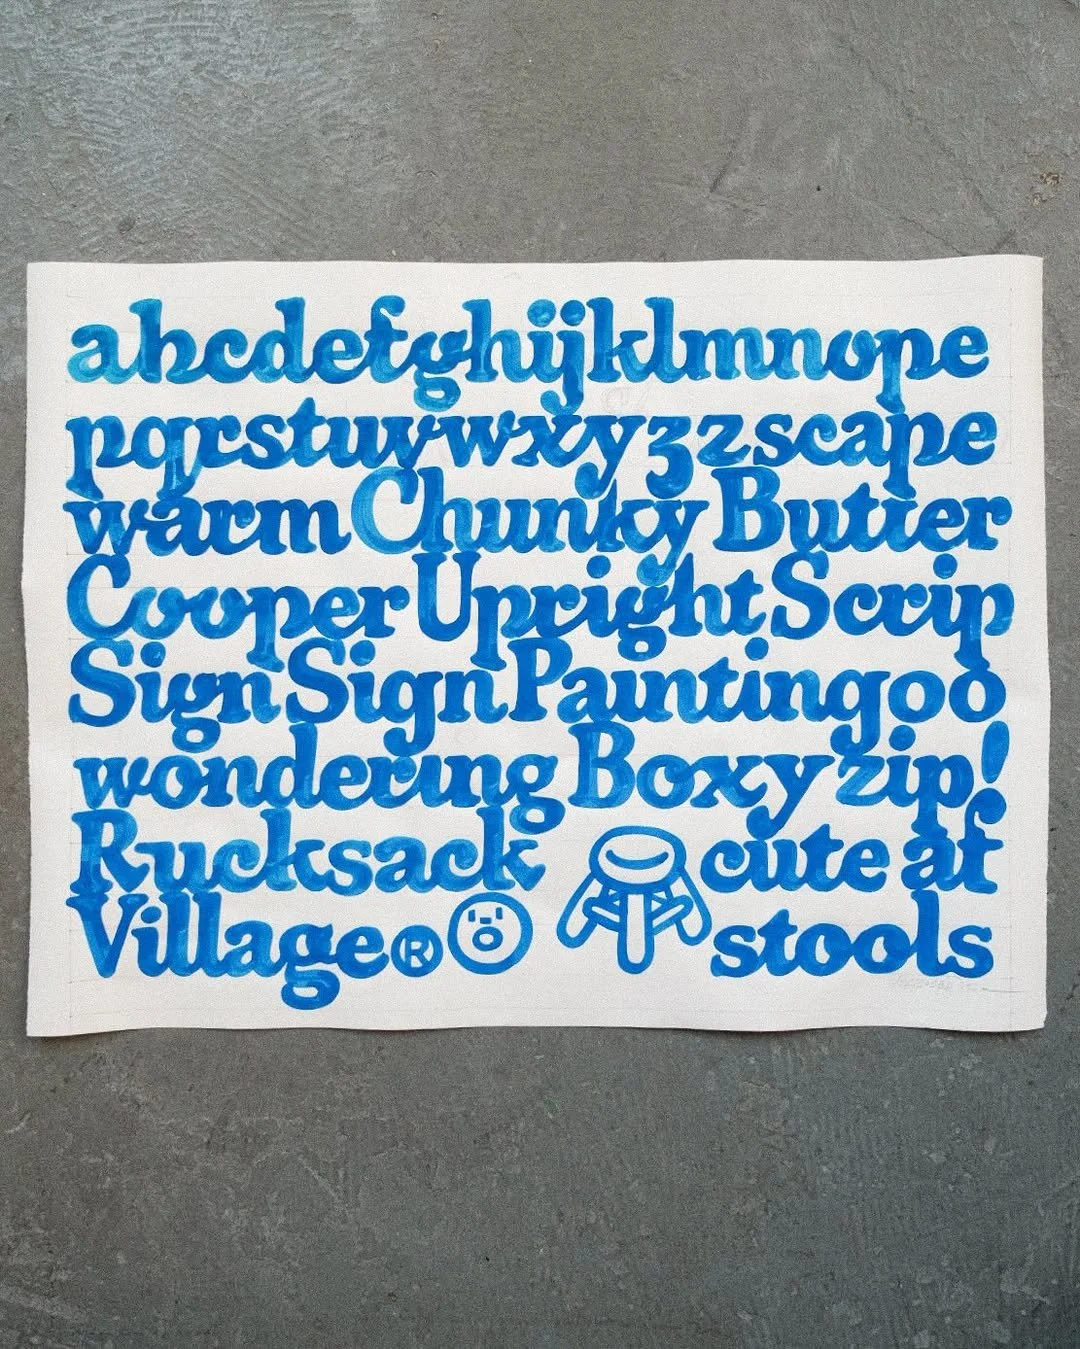 abcdefghijklmnope
pqrstuvwxyz3zscape
warm Chunky Butter
Cooper Upright Scrip
Sign Sign Paintingoo
wondering Boxy zip!
Rucksack cute af
Village® stools